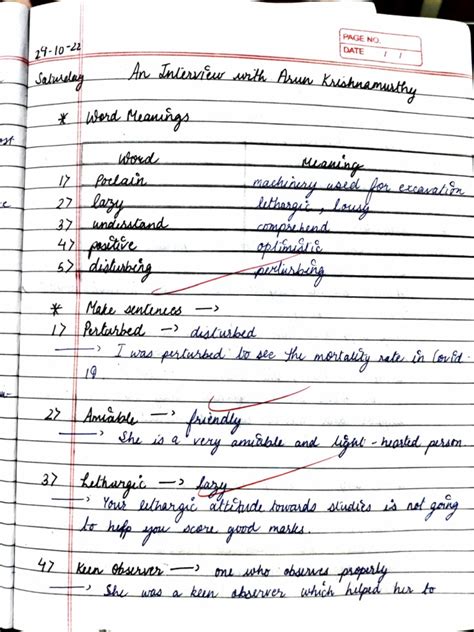 PAGE NO.
DATE / /
29-10-22
Saturday
An Interview with Arun Krishnamurthy
* Word Meanings
Word Meaning
1) Poclain machinery used for excavation
2) lazy lethargic, lousy
3) understand comprehend
4) positive optimistic
5) disturbing perturbing
* Make sentences →
1) Perturbed → disturbed
→ I was perturbed to see the mortality rate in Covid
19
2) Amiable → friendly
→ She is a very amiable and light-hearted person
3) Lethargic → lazy
→ Your lethargic attitude towards studies is not going
to help you score good marks.
4) Keen Observer → one who observes properly
→ She was a keen observer which helped her to